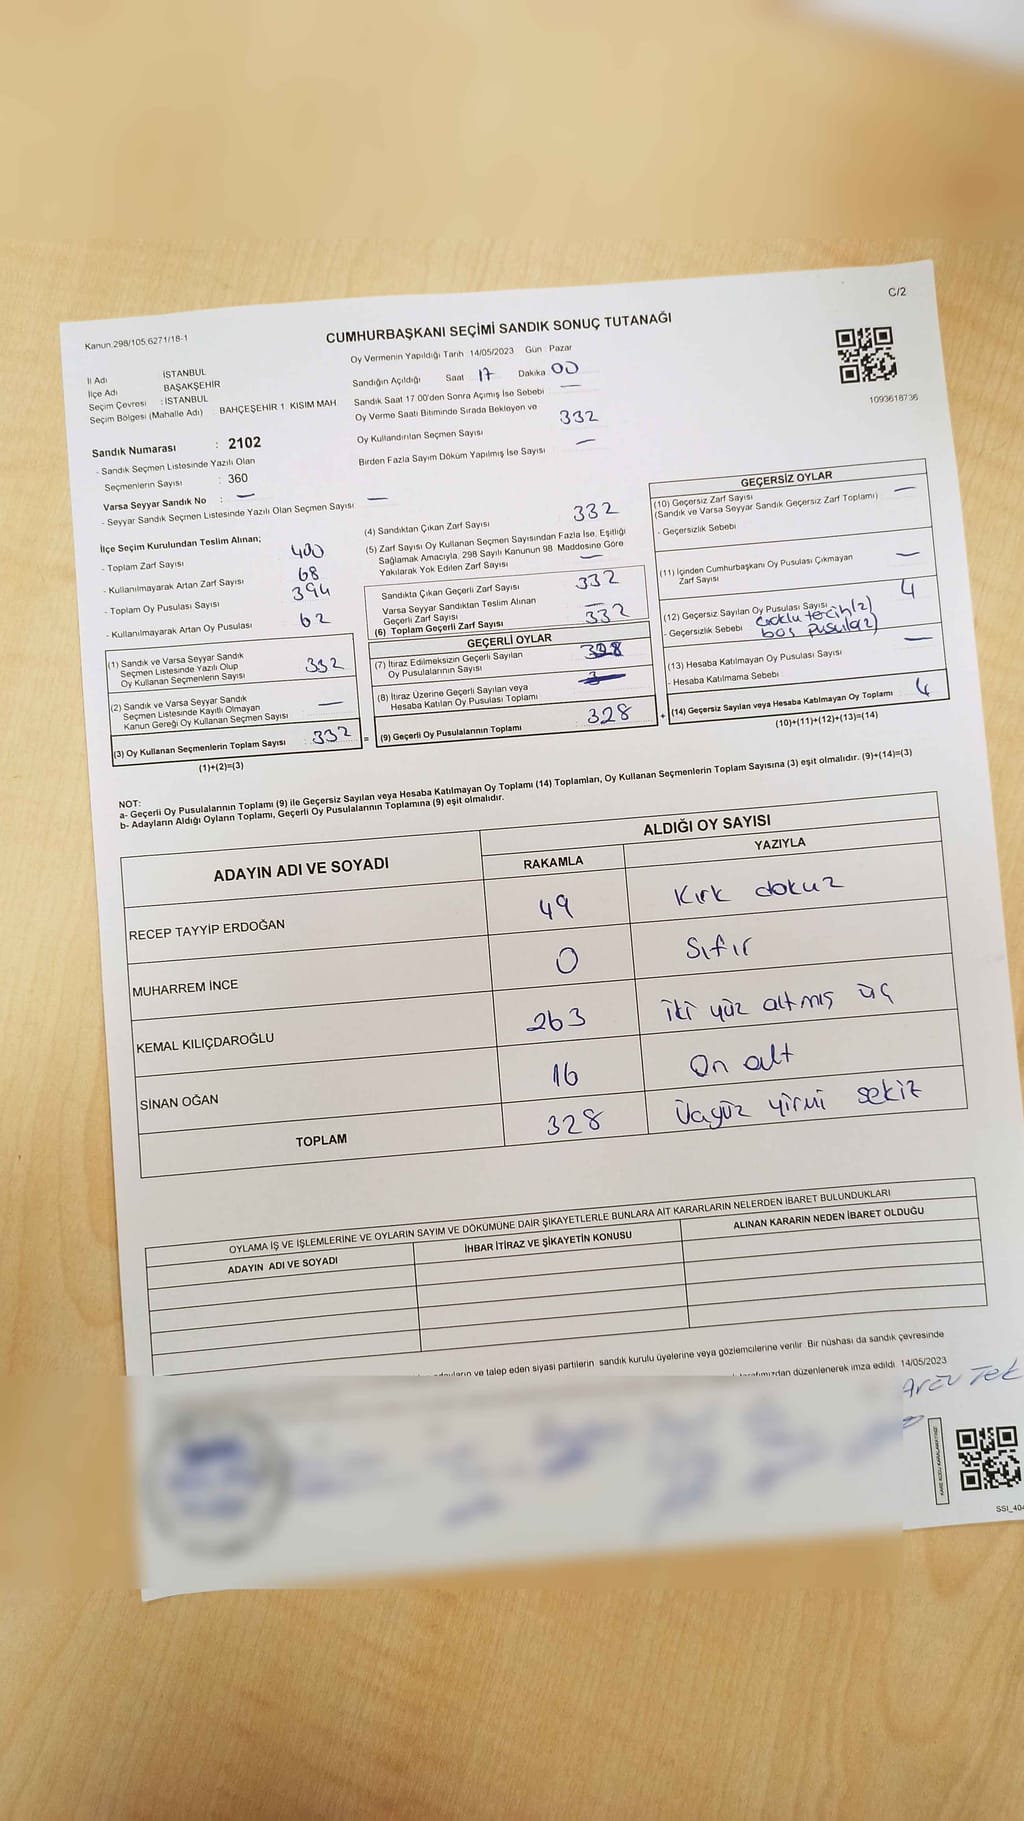 C/2
Kanun.298/105,6271/18-1
CUMHURBAŞKANI SEÇİMİ SANDIK SONUÇ TUTANAĞI
1093618736
İl Adı : İSTANBUL
İlçe Adı : BAŞAKŞEHİR
Seçim Çevresi : İSTANBUL
Seçim Bölgesi (Mahalle Adı) BAHÇEŞEHİR 1 KISIM MAH
Sandık Numarası : 2102
- Sandık Seçmen Listesinde Yazılı Olan
Seçmenlerin Sayısı : 360
Varsa Seyyar Sandık No : —
- Seyyar Sandık Seçmen Listesinde Yazılı Olan Seçmen Sayısı —
Oy Vermenin Yapıldığı Tarih 14/05/2023 Gün Pazar
Sandığın Açıldığı Saat 17 Dakika 00
Sandık Saat 17.00'den Sonra Açımış İse Sebebi —
Oy Verme Saati Bitiminde Sırada Bekleyen ve
Oy Kullandırılan Seçmen Sayısı 332
Birden Fazla Sayım Döküm Yapılmış İse Sayısı —
İlçe Seçim Kurulundan Teslim Alınan;
- Toplam Zarf Sayısı 400
- Kullanılmayarak Artan Zarf Sayısı 68
- Toplam Oy Pusulası Sayısı 394
- Kullanılmayarak Artan Oy Pusulası 62
(1) Sandık ve Varsa Seyyar Sandık
Seçmen Listesinde Yazılı Olup
Oy Kullanan Seçmenlerin Sayısı 332
(2) Sandık ve Varsa Seyyar Sandık
Seçmen Listesinde Kayıtlı Olmayan
Kanun Gereği Oy Kullanan Seçmen Sayısı —
(3) Oy Kullanan Seçmenlerin Toplam Sayısı 332 =
(1)+(2)=(3)
(4) Sandıktan Çıkan Zarf Sayısı 332
(5) Zarf Sayısı Oy Kullanan Seçmen Sayısından Fazla İse, Eşitliği
Sağlamak Amacıyla, 298 Sayılı Kanunun 98. Maddesine Göre
Yakılarak Yok Edilen Zarf Sayısı —
Sandıkta Çıkan Geçerli Zarf Sayısı 332
Varsa Seyyar Sandıktan Teslim Alınan
Geçerli Zarf Sayısı —
(6) Toplam Geçerli Zarf Sayısı 332
GEÇERLİ OYLAR
(7) İtiraz Edilmeksizin Geçerli Sayılan
Oy Pusulalarının Sayısı 328
(8) İtiraz Üzerine Geçerli Sayılan veya
Hesaba Katılan Oy Pusulası Toplamı
(9) Geçerli Oy Pusulalarının Toplamı 328 +
GEÇERSİZ OYLAR
(10) Geçersiz Zarf Sayısı —
(Sandık ve Varsa Seyyar Sandık Geçersiz Zarf Toplamı)
- Geçersizlik Sebebi
(11) İçinden Cumhurbaşkanı Oy Pusulası Çıkmayan
Zarf Sayısı —
(12) Geçersiz Sayılan Oy Pusulası Sayısı 4
- Geçersizlik Sebebi Çoklu tercih(2)
boş pusula(2)
(13) Hesaba Katılmayan Oy Pusulası Sayısı —
- Hesaba Katılmama Sebebi
(14) Geçersiz Sayılan veya Hesaba Katılmayan Oy Toplamı 4
(10)+(11)+(12)+(13)=(14)
NOT:
a- Geçerli Oy Pusulalarının Toplamı (9) ile Geçersiz Sayılan veya Hesaba Katılmayan Oy Toplamı (14) Toplamları, Oy Kullanan Seçmenlerin Toplam Sayısına (3) eşit olmalıdır. (9)+(14)=(3)
b- Adayların Aldığı Oyların Toplamı, Geçerli Oy Pusulalarının Toplamına (9) eşit olmalıdır.
ADAYIN ADI VE SOYADI
ALDIĞI OY SAYISI
RAKAMLA YAZIYLA
RECEP TAYYİP ERDOĞAN 49 Kırk dokuz
MUHARREM İNCE 0 Sıfır
KEMAL KILIÇDAROĞLU 263 iki yüz altmış üç
SİNAN OĞAN 16 On altı
TOPLAM 328 Üçyüz yirmi sekiz
OYLAMA İŞ VE İŞLEMLERİNE VE OYLARIN SAYIM VE DÖKÜMÜNE DAİR ŞİKAYETLERLE BUNLARA AİT KARARLARIN NELERDEN İBARET BULUNDUKLARI
ADAYIN ADI VE SOYADI İHBAR İTİRAZ VE ŞİKAYETİN KONUSU ALINAN KARARIN NEDEN İBARET OLDUĞU
ve talep eden siyasi partilerin sandık kurulu üyelerine veya gözlemcilerine verilir. Bir nüshası da sandık çevresinde
düzenlenerek imza edildi. 14/05/2023